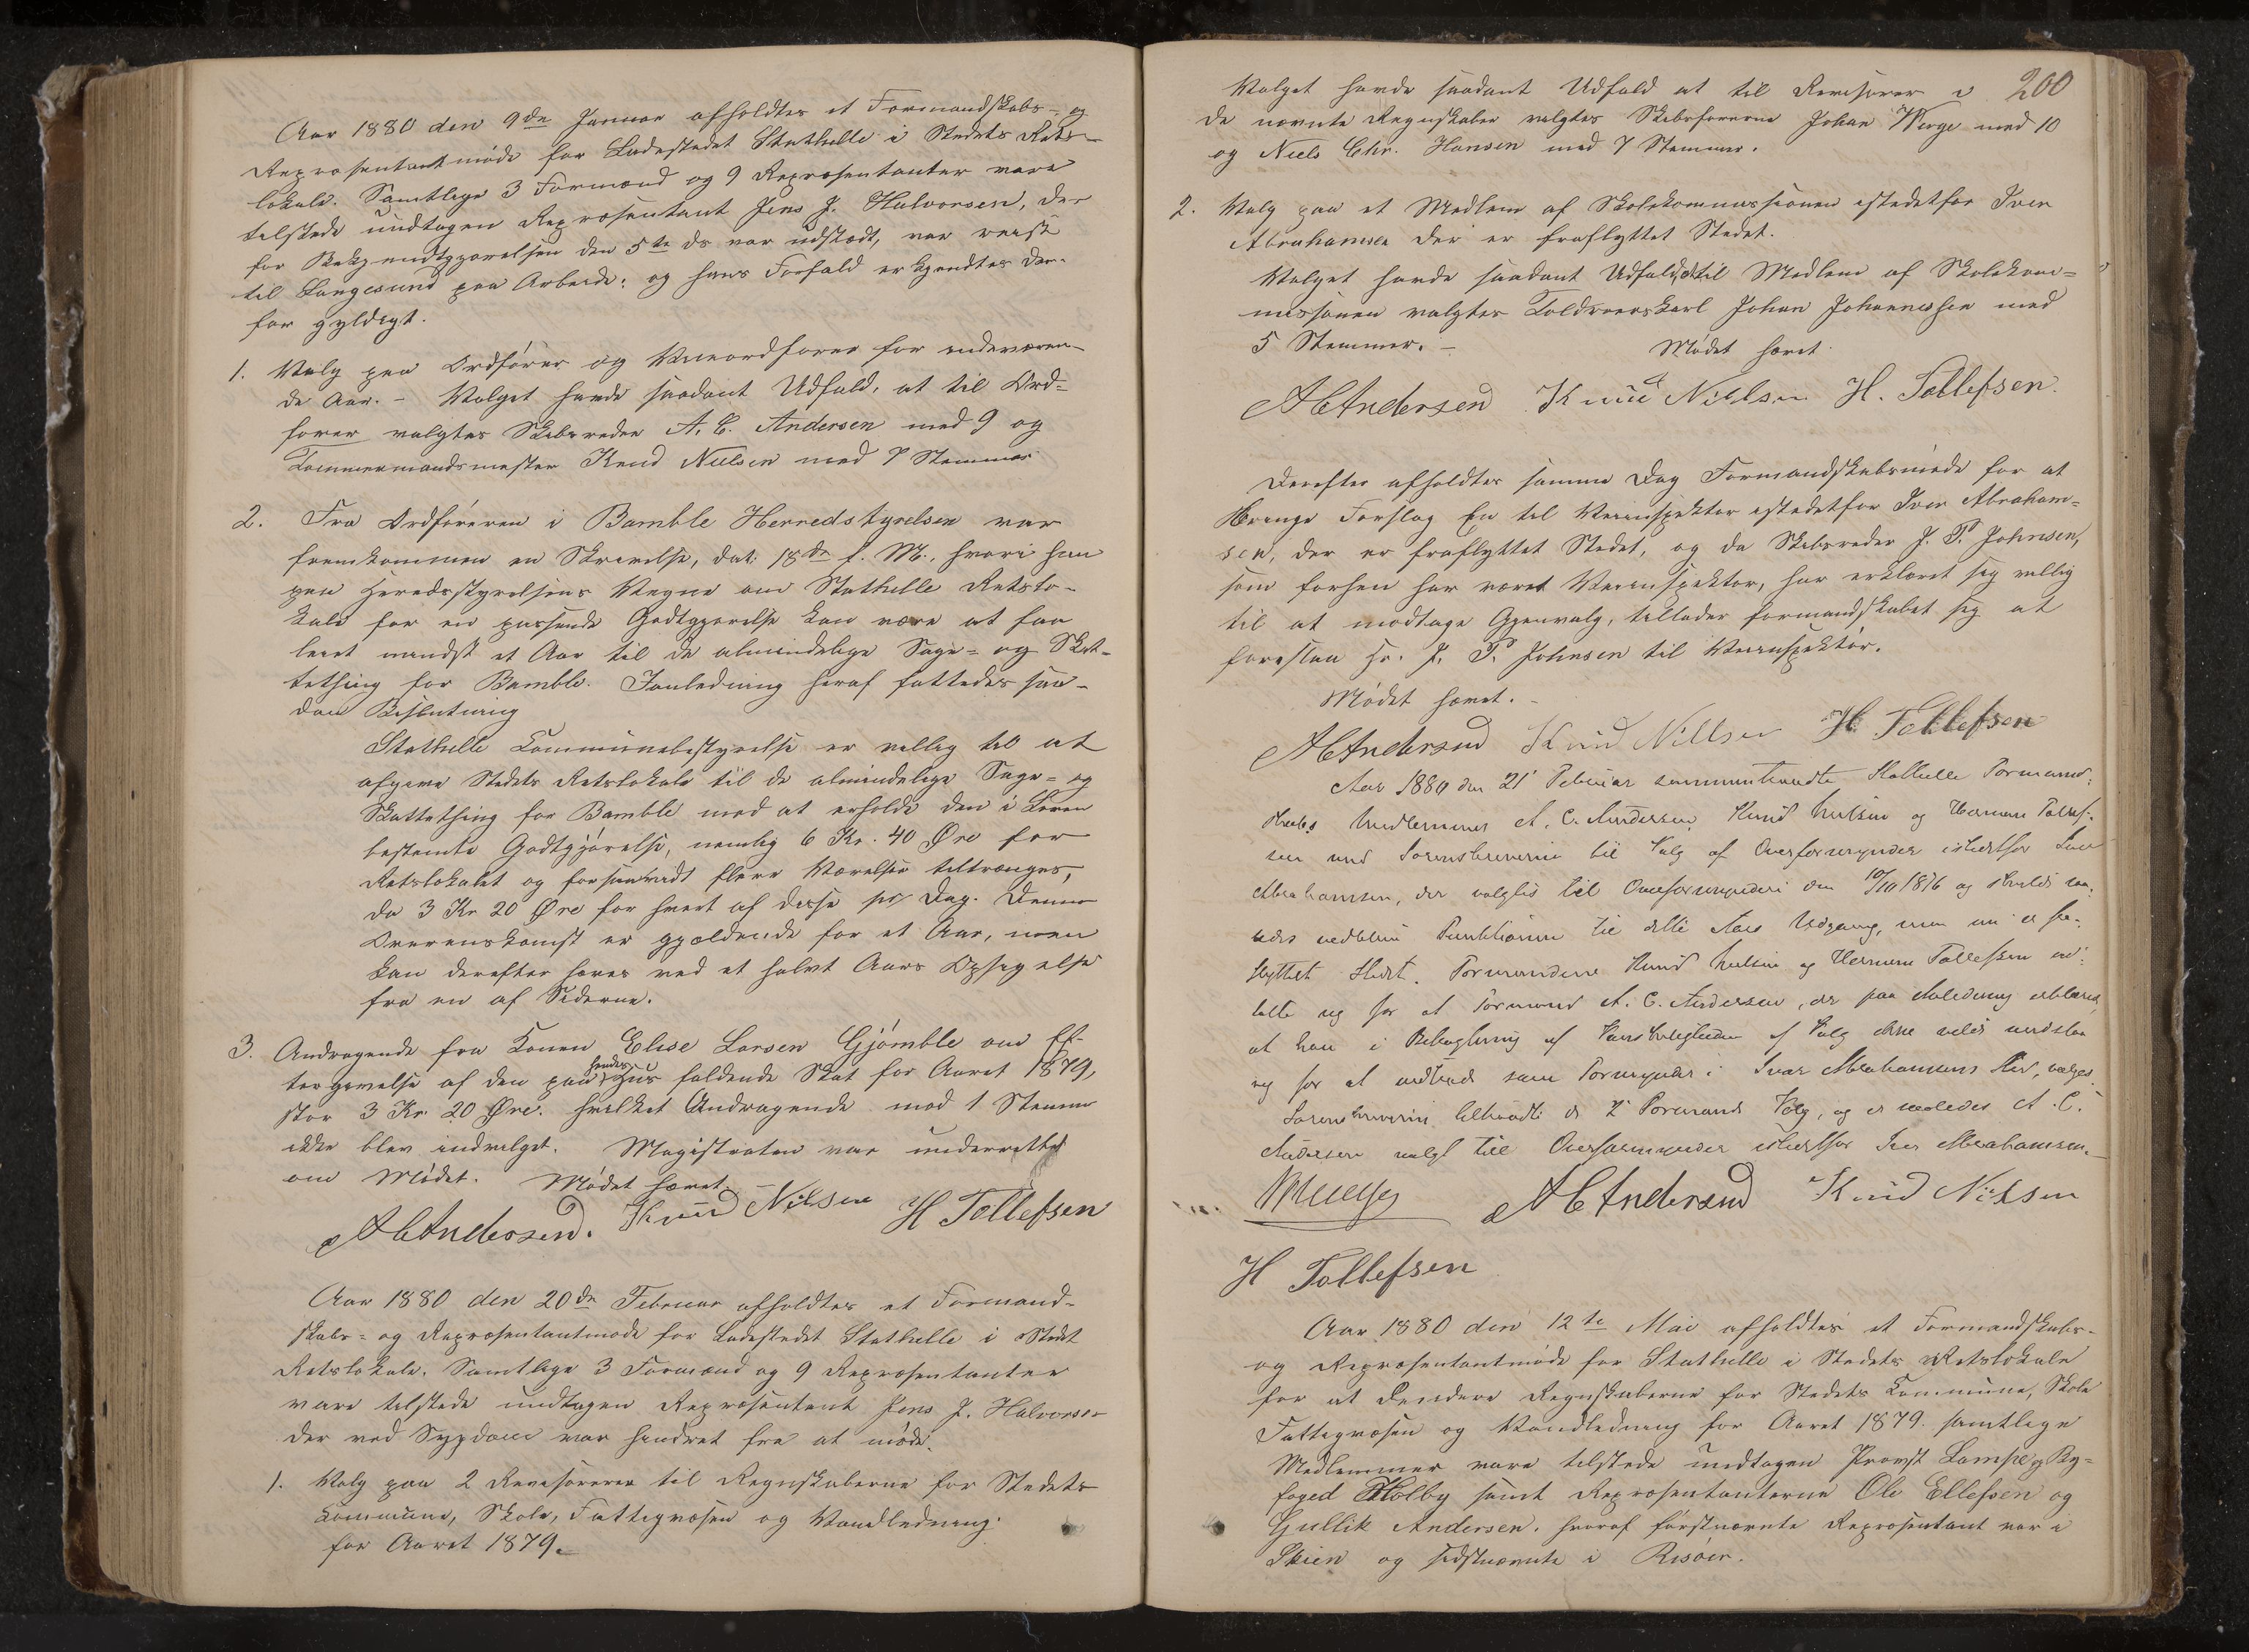 Aar 1880 den 9de Januar afholdtes et Formandskabs- og
Repræsentantmøde for Ladestedet Stathelle i Stedets Rets-
lokale. Samtlige 3 Formænd og 9 Repræsentanter vare
tilstede undtagen Repræsentant Jens J. Halvorsen, der
for Bekjendtgjørelsen den 5te ds var udstædt, var reist
til Langesund paa Arbeide; og hans Forfald erkjendtes der-
for gyldigt.
1. Valg paa Ordfører og Viceordfører for indeværen-
de Aar. - Valget havde saadant Udfald, at til Ord-
fører valgtes Skibsreder A. C. Andersen med 9 og
Tømmermandsmester Knud Nielsen med 7 Stemmer
2. Fra Ordføreren i Bamble Herredstyrelsen var
fremkommen en Skrivelse, dat: 18de f. M., hvori han
paa Heredsstyrelsens Vegne om Stathelle Retslo-
kale for en passende Godtgjørelse kan være at faa
leiet mindst et Aar til de almindelige Sage- og Skat-
tething for Bamble. Ianledning heraf fattedes saa-
dan Beslutning
Stathelle Communebestyrelse er villig til at
afgive Stedets Retslokale til de almindelige Sage- og
Skattething for Bamble mod at erholde den i Loven
bestemte Godtgjørelse, nemlig 6 Kr. 40 Øre for
Retslokalet og forsaavidt flere Værelser tiltrænges,
da 3 Kr 20 Øre for hvert af disse pr Dag. Denne
Overenskomst er gjældende for et Aar, men
kan derefter hæves ved et halvt Aars Opsigelse
fra en af Siderne.
3. Andragende fra Konen Elise Larsen Gjømble om Ef-
tergivelse af den paa hendes Hus faldende Skat for Aaret 1879,
stor 3 Kr. 20 Øre. hvilket Andragende mod 1 Stemme
ikke blev indvilget. Magistraten var underrettet
om Mødet. Mødet hævet. -
A C Andersen. Knud Nilsen H Tollefsen
Aar 1880 den 20de Februar afholdtes et Formand-
skabs- og Repræsentantmøde for Ladestedet Stathelle i Stedets
Retslokale. Samtlige 3 Formænd og 9 Repræsentanter
vare tilstede undtagen Repræsentant Jens J. Halvorsen
der ved Sygdom var hindret fra at møde.
1. Valg paa 2 Revisorerer til Regnskaberne for Stedets
Commune, Skole, Fattigvæsen og Vandledning
for Aaret 1879.
200
Valget havde saadant Udfald at til Revisorer i
de nævnte Regnskaber valgtes Skibsførerne Johan Wirge med 10
og Niels Chr. Hansen med 7 Stemmer.
2. Valg paa et Medlem af Skolekommissionen istedetfor Iver
Abrahamsen der er fraflyttet Stedet.
Valget havde saadant Udfald, at til Medlem af Skolekom-
missionen valgtes Toldroerskarl Johan Johannessen med
5 Stemmer. - Mødet hævet.
A C Andersen Knud Nielsen H. Tollefsen.
Derefter afholdtes samme Dag Formandskabsmøde for at
bringe Forslag En til Veiinspektør istedetfor Iver Abraham-
sen, der er fraflyttet Stedet, og da Skibsreder J. P. Johnsen,
som forhen har været Veiinspektør, har erklæret sig villig
til at modtage Gjenvalg, tillader formandskabet sig at
foreslaa Hr. J. P. Johnsen til Veiinspektør.
Mødet hævet. -
A C Andersen Knud Nielsen H. Tollefsen
Aar 1880 den 21 Februar sammentraadte Stathelle Formand-
skabs Medlemmer A. C. Andersen, Knud Nielsen og Herman Tollef-
sen med Sorenskriveren til Valg af Overformynder istedetfor Iver
Abrahamsen, der valgtes til Overformynder den 10/10 1876 og skulde saa-
ledes vedblive Funktionen til dette Aars Udgang, men nu er fra-
flyttet Stedet. Formændene Knud Nielsen og Herman Tollefsen ud-
talte sig for at Formand A. C. Andersen, der paa Anledning erklærede
at han i Betragtning af Vanskeligheden af Valg ikke vilde undslaa
sig for at indtræde som Formynder i Iver Abrahamsens Sted, vælges.
Sorenskriveren tiltraadte de 2 Formænds Valg, og er saaledes A. C.
Andersen valgt til Overformynder istedetfor Iver Abrahamsen. -
A C Andersen Knud Nilsen
H Tollefsen
Aar 1880 den 12te Mai afholdtes et Formandskabs-
og Repræsentantmøde for Stathelle i Stedets Retslokale
for at decidere Regnskaberne for Stedets Commune, Skole
Fattigvæsen og Vandledning for Aaret 1879. samtlige
Medlemmer vare tilstede undtagen Provst Lampe, By-
foged Holby samt Repræsentanterne Ole Ellefsen og
Gullik Andersen. hvoraf førstnævnte Repræsentant var i
Skien og sidstnævnte i Risøer.